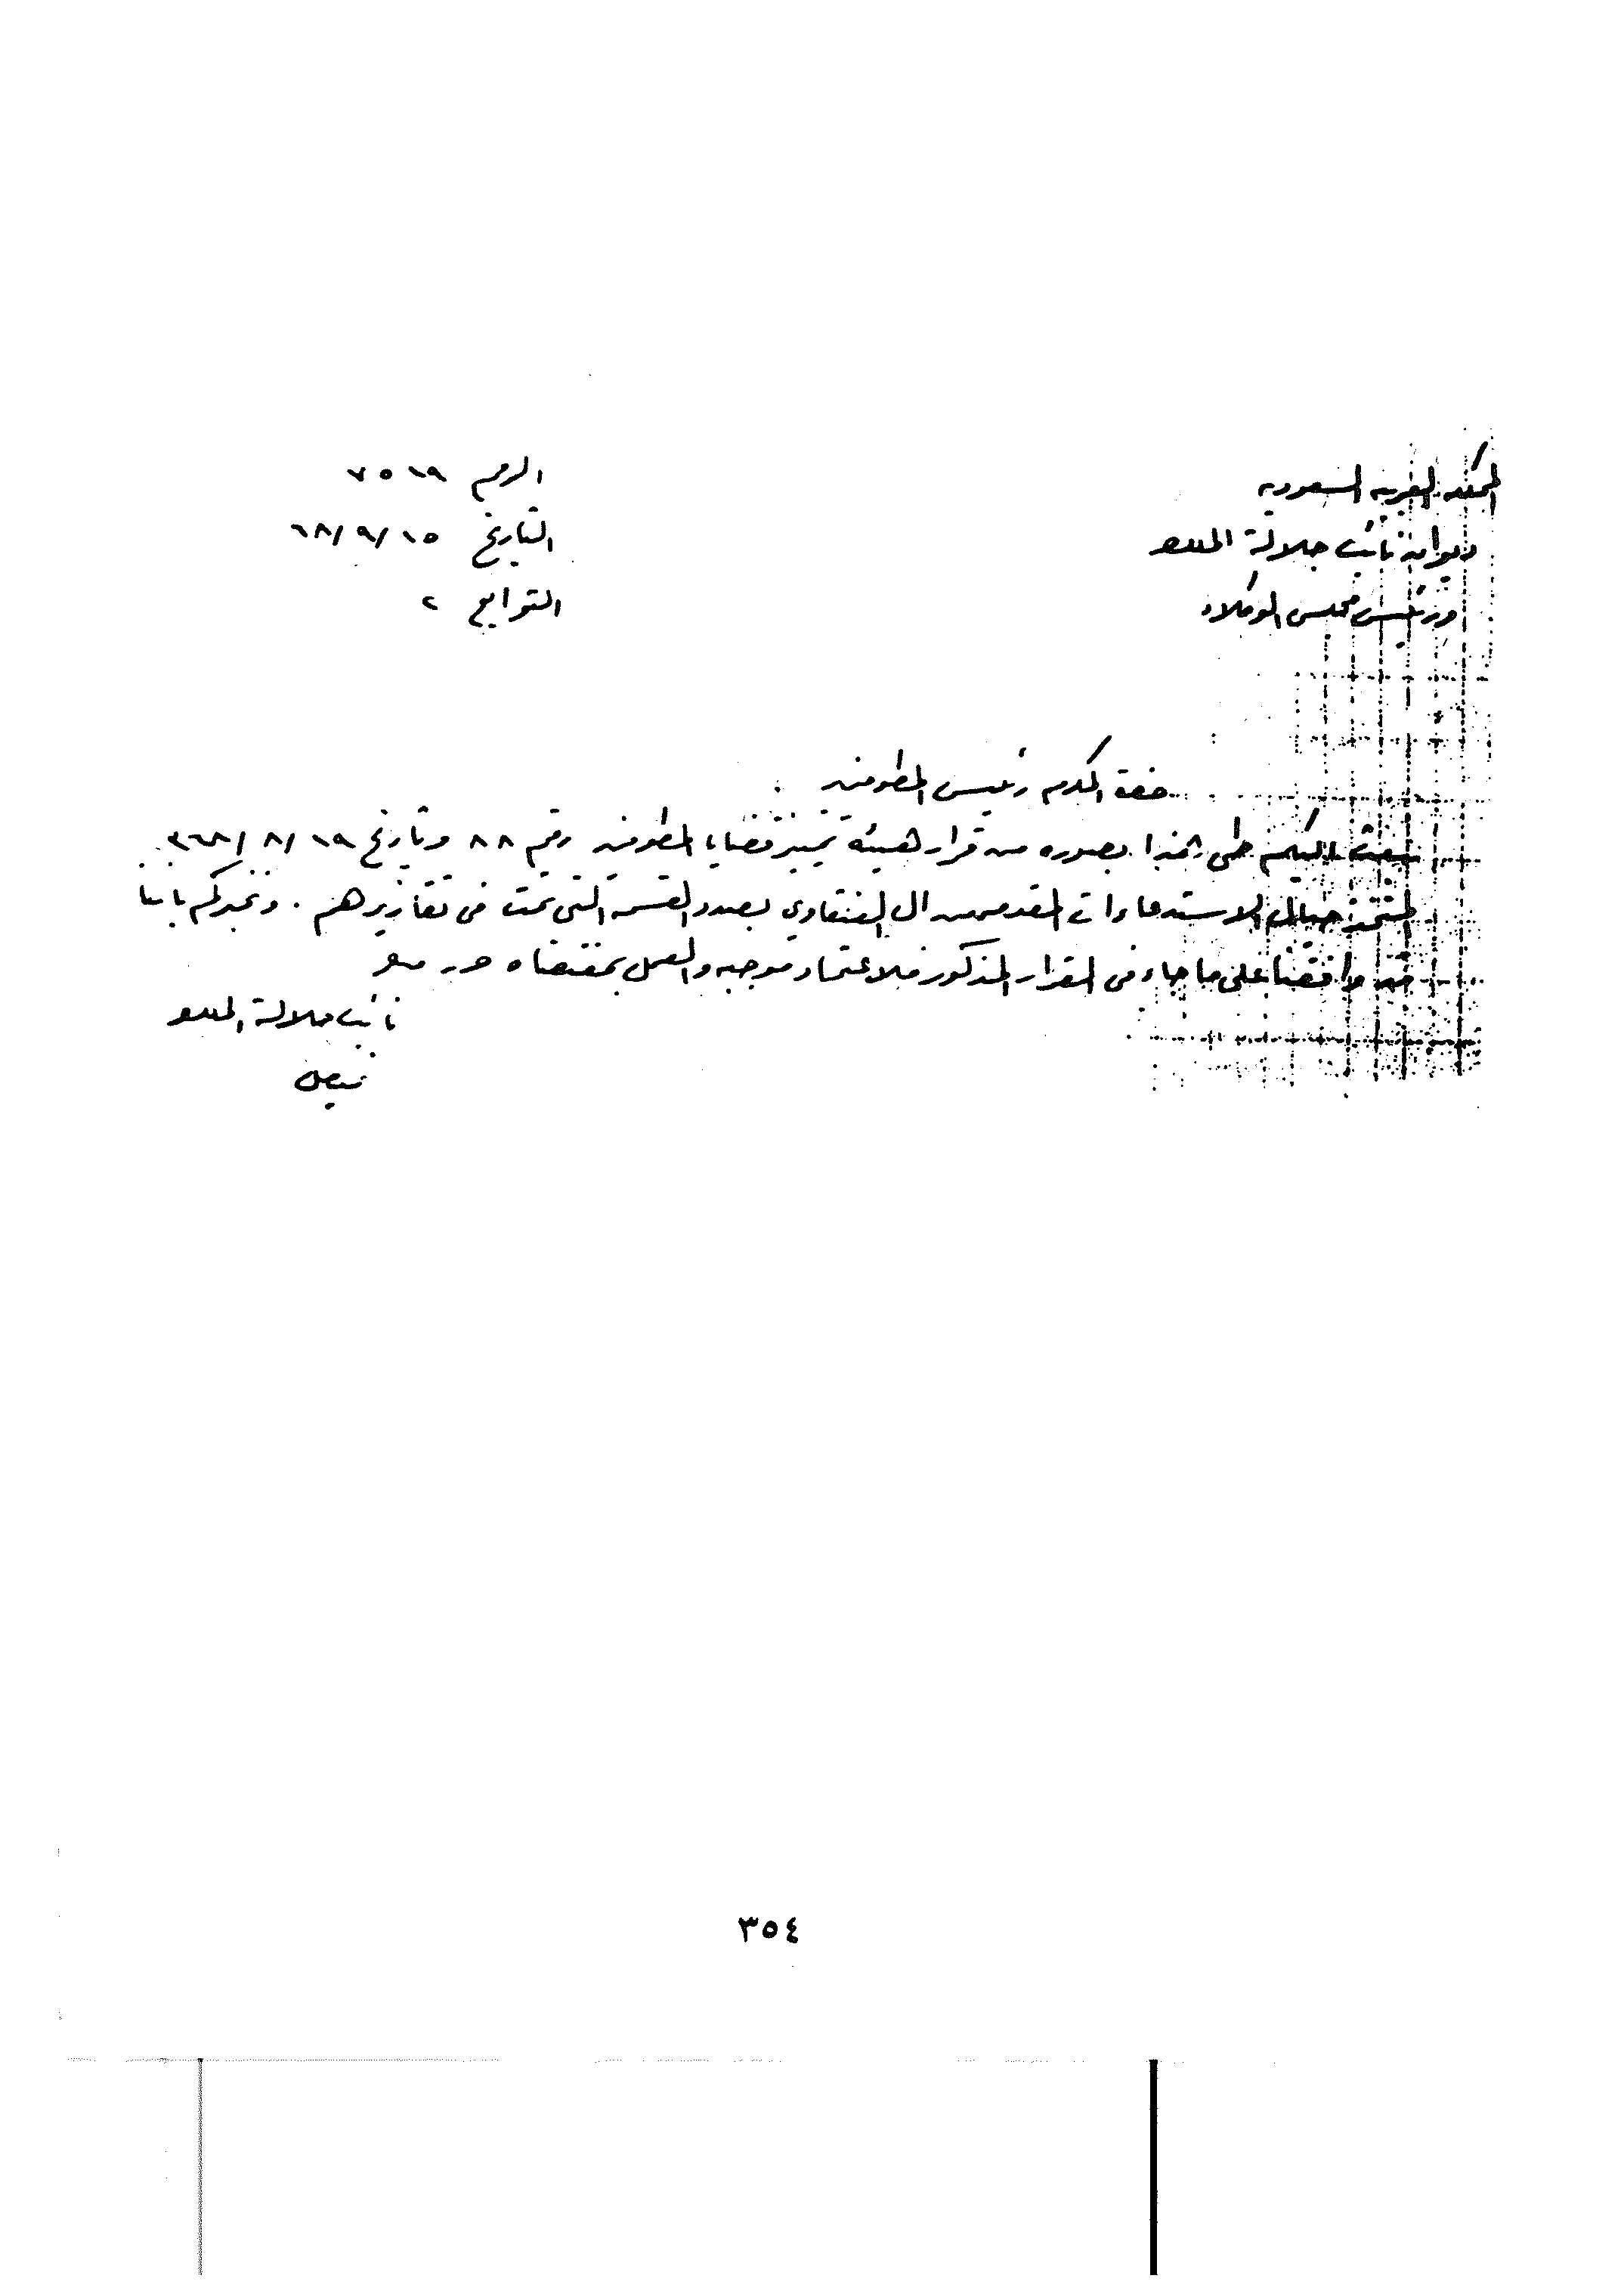 المملكة العربية السعودية
ديوان نائب جلالة الملك
ورئيس مجلس الوكلاء
الرقم ٧٥١٩
التاريخ ٦٨/٩/١٥
التوابع ٢
حضرة المكرم رئيس المطوفين :
نبعث اليكم طي هذا بصوره من قرار هيئة تمييز قضايا المطوفين رقم ٨٨ وتاريخ ٣٦٨/٨/١٩
المتخذ حيال الاستدعاءات المقدمه من ال الفنقاوي بصدد القسمه التي تمت في تقاريرهم . ونخبركم باننا
قد وافقنا على ما جاء في القرار المذكور فلاعتماد موجبه والعمل بمقتضاه حرر
نائب جلالة الملك
فيصل
٣٥٤